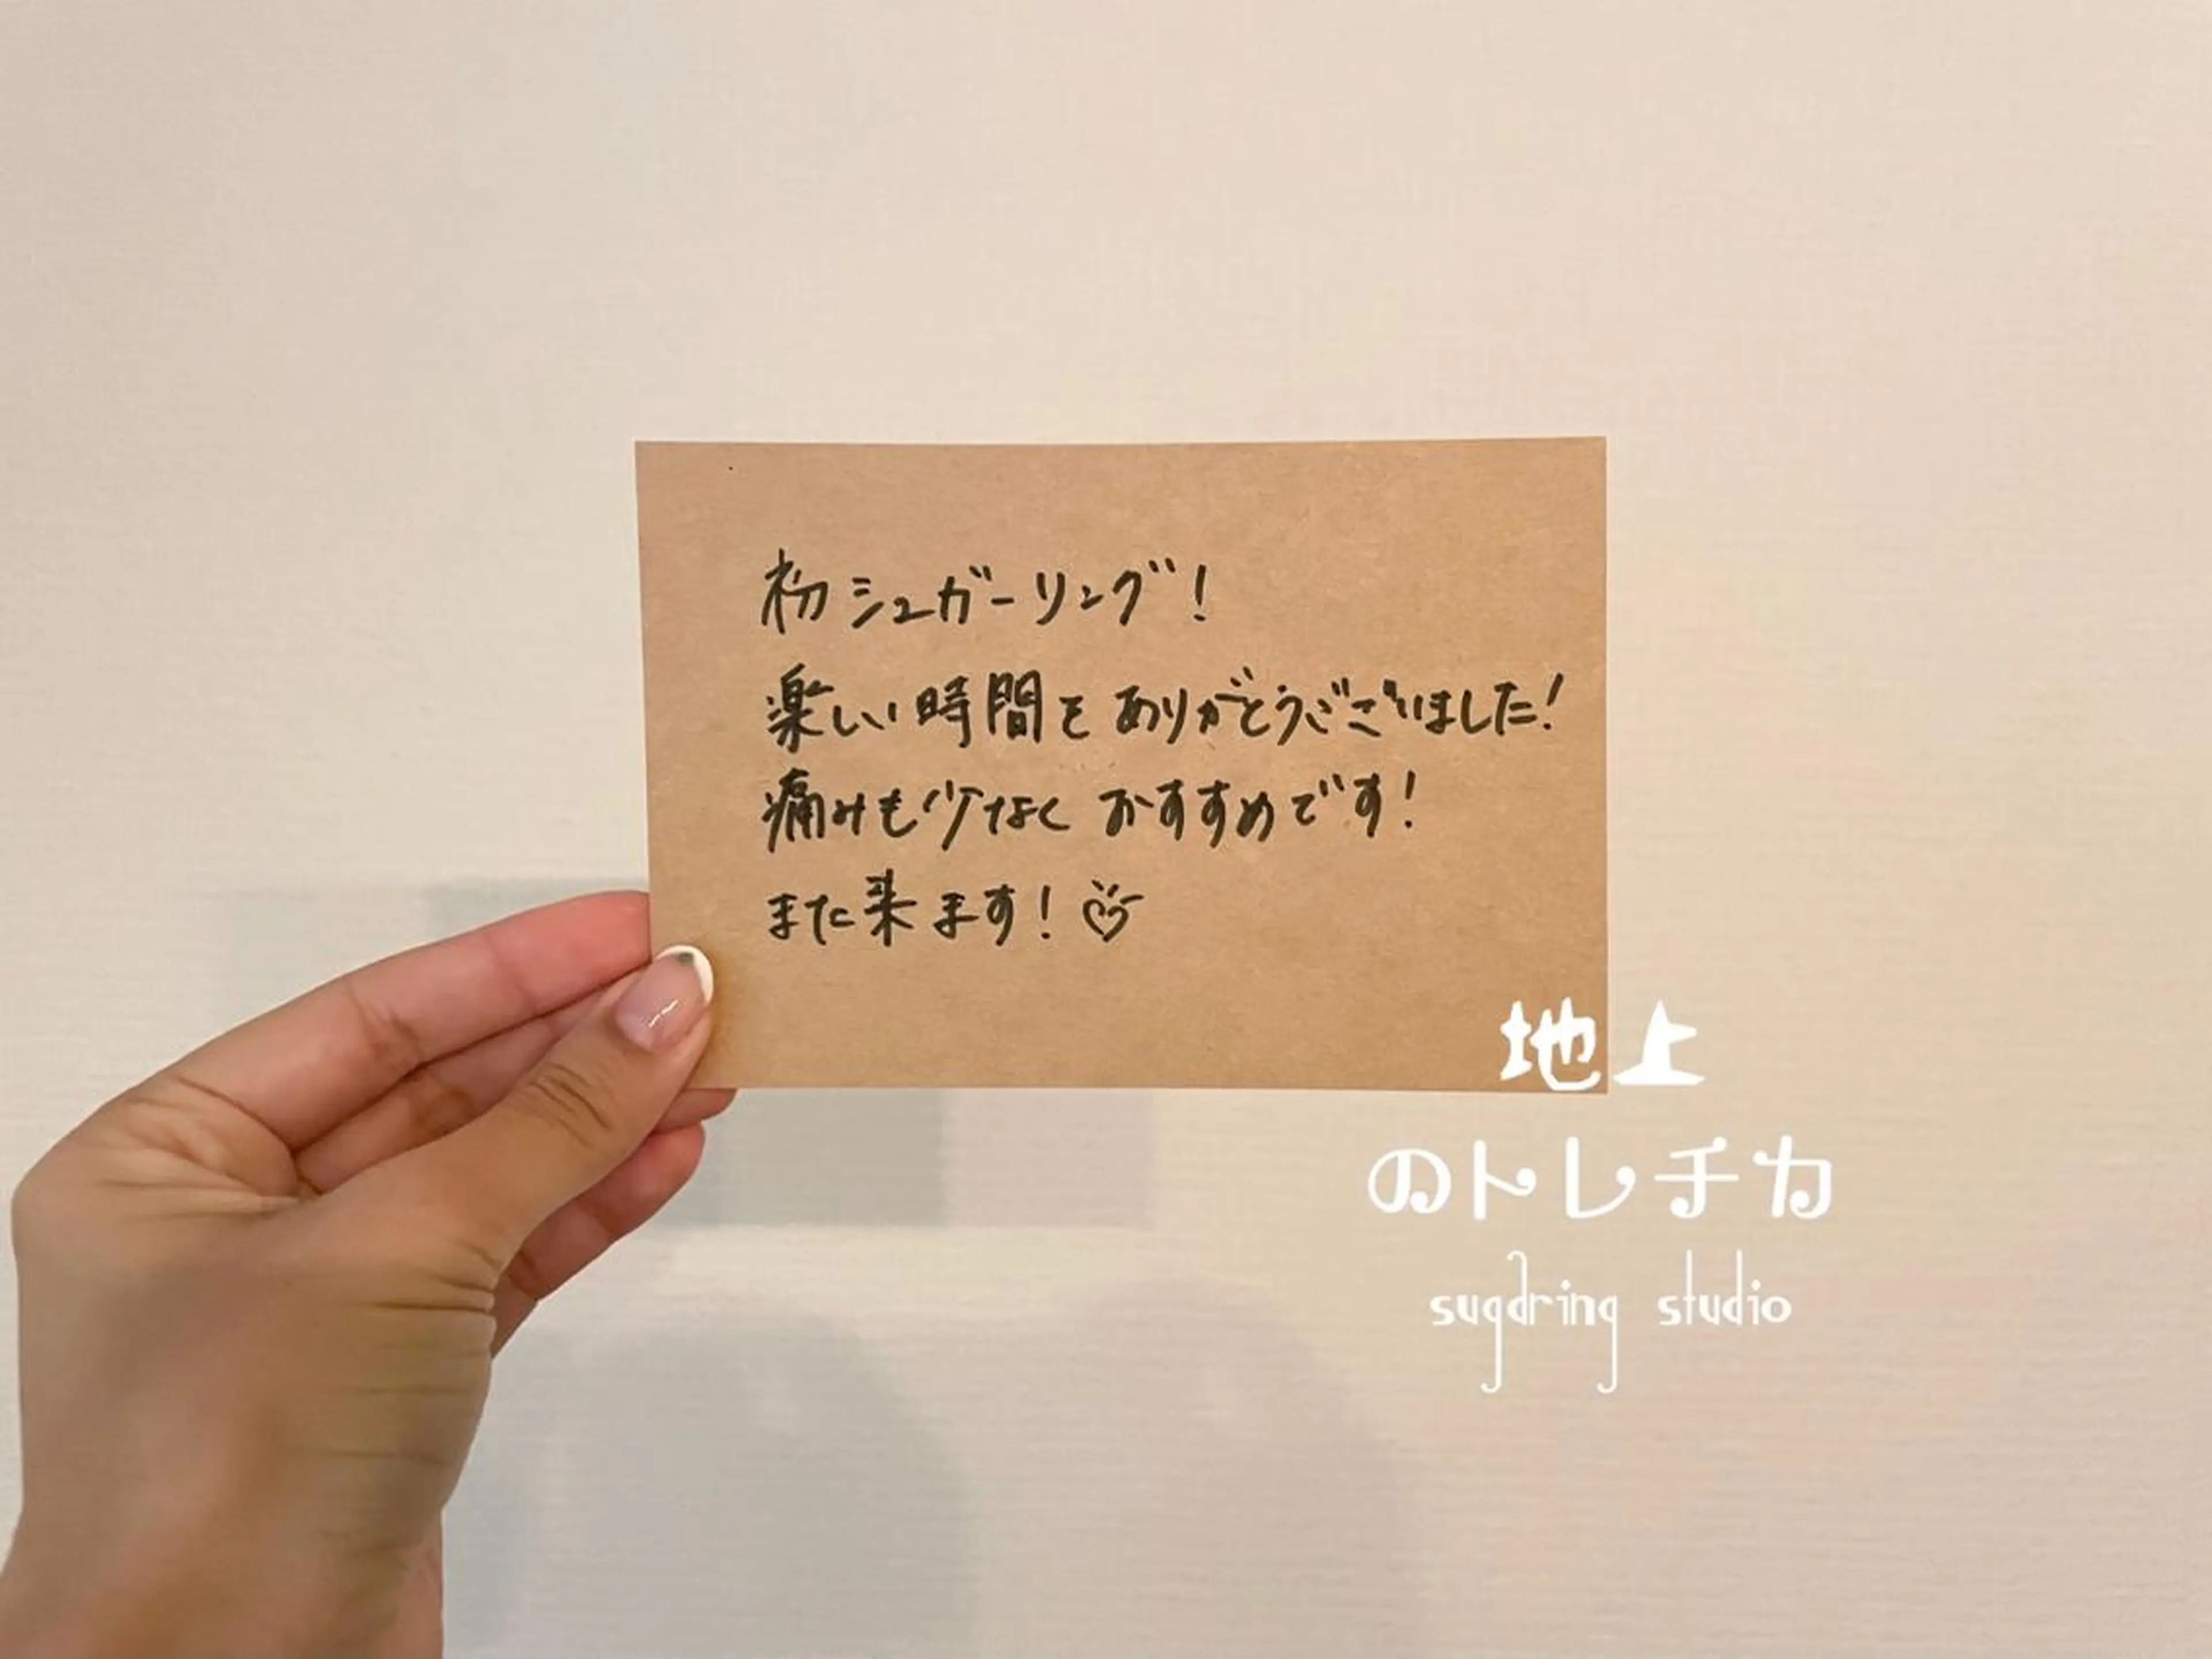 初シュガーリング！
楽しい時間をありがとうございました！
痛みも少なくおすすめです！
また来ます！
地上
のトレチカ
sugaring studio